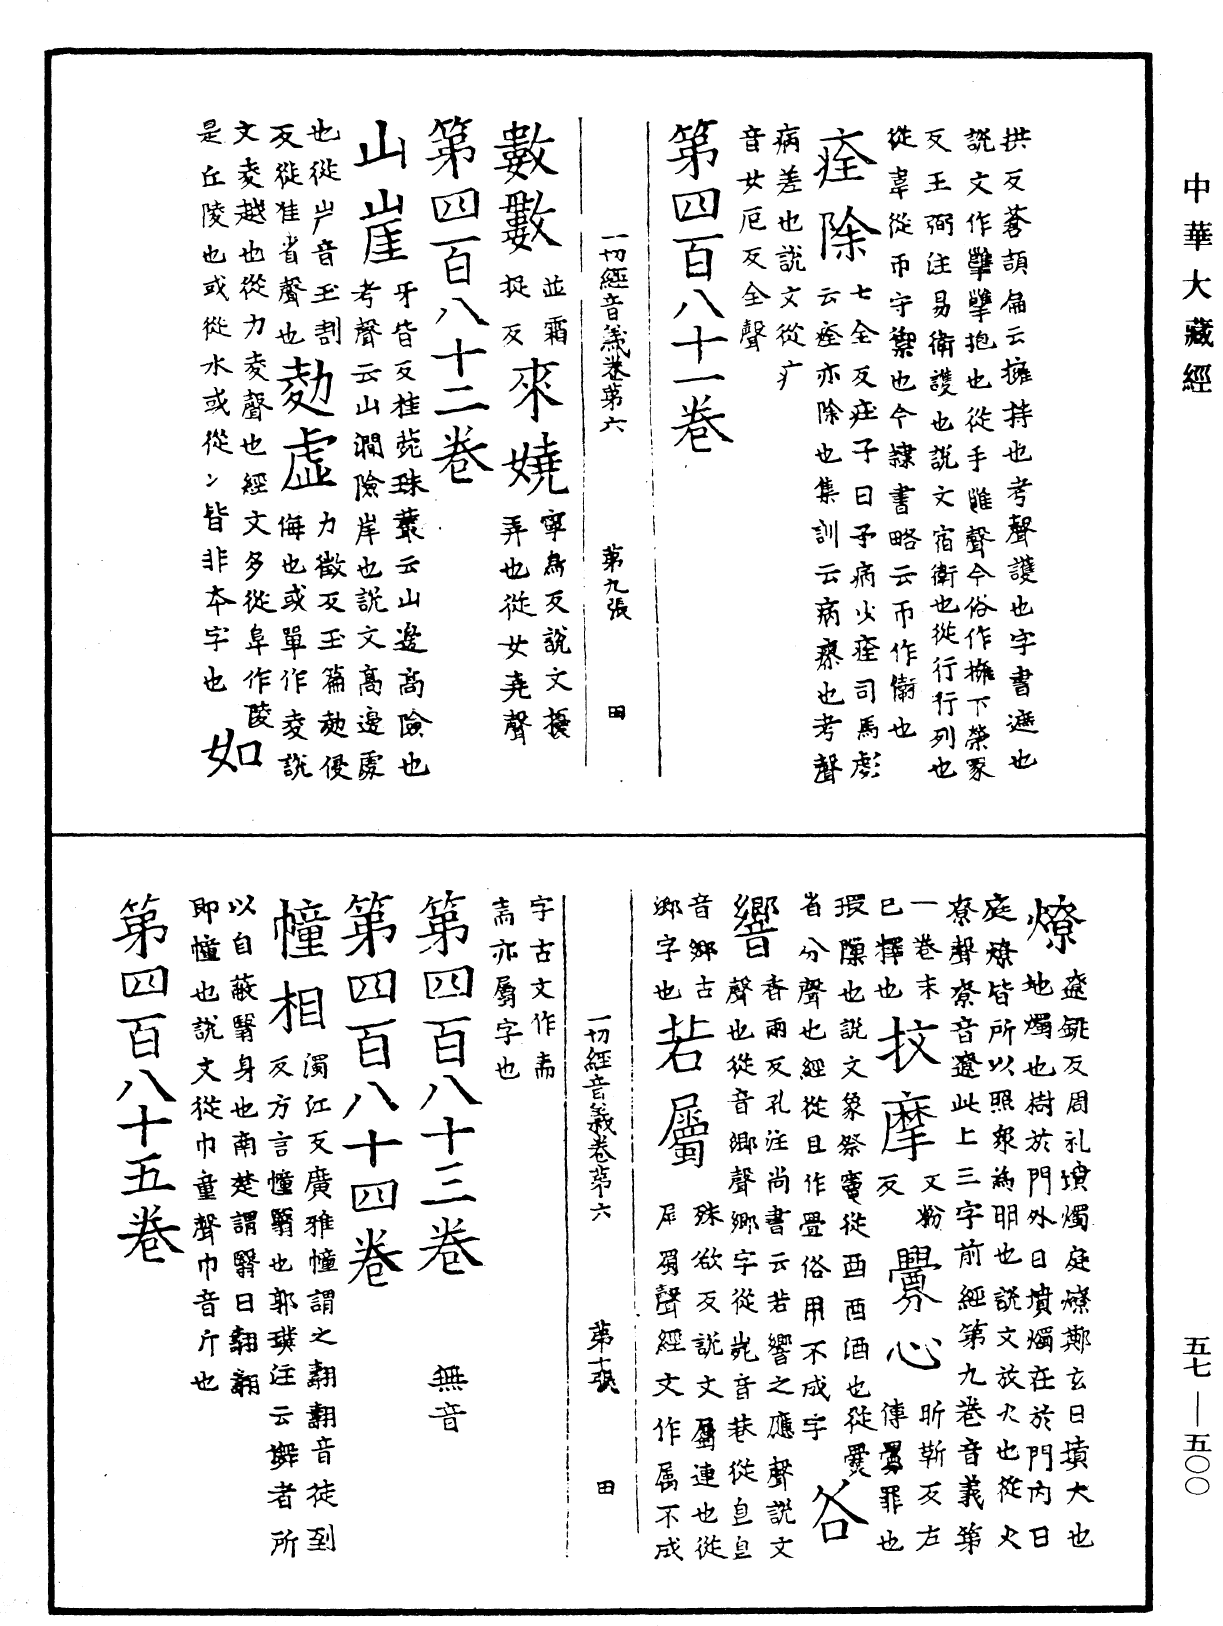 中華大藏經
拱反蒼頡扁云擁持也考聲護也字書遮也
說文作㩴㩴抱也從手雝聲今俗作擁下榮翠
反王弼注易衛護也說文宿衛也從行行列也
從韋從帀守禦也今隸書略云帀作衛也
痊除
七全反莊子曰予病少痊司馬彪
云痊亦除也集訓云病瘳也考聲
病差也說文從疒
音女厄反全聲
第四百八十一卷
一切經音義卷第六 第九張 田
數數
並霜
捉反
來嬈
寧鳥反說文擾
弄也從女堯聲
第四百八十二卷
山崖
牙皆反桂苑珠叢云山邊高險也
考聲云山澗險岸也說文高邊處
也從屵音五割
反從隹省聲也
勎虛
力徵反玉篇勎侵
侮也或單作夌說
文夌越也從力夌聲也經文多從阜作陵
是丘陵也或從水或從冫皆非本字也
如
燎
遼銚反周礼墳燭庭燎鄭玄曰墳大也
地燭也樹於門外曰墳燭在於門內曰
庭燎皆所以照衆為明也說文放火也從火
尞聲尞音遼此上三字前經第九卷音義第
一卷末
已釋也
抆摩
文粉
反
釁心
昕靳反左
傳釁罪也
瑕隟也說文象祭竈從酉酉酒也從爂
省分聲也經從且作亹俗用不成字
谷
響
香兩反孔注尚書云若響之應聲說文
聲也從音鄉聲鄉字從䢽音巷從皀皀
音鄉古
鄉字也
若屬
殊欲反說文屬連也從
尾蜀聲經文作属不成
字古文作𡱆
𡱆亦屬字也
一切經音義卷第六 第十張 田
第四百八十三卷 無音
第四百八十四卷
幢相
濁江反廣雅幢謂之翿翿音徒到
反方言幢翳也郭璞注云儛者所
以自蔽翳身也南楚謂翳曰翿翿
即幢也說文從巾童聲巾音斤也
第四百八十五卷
五七—五〇〇